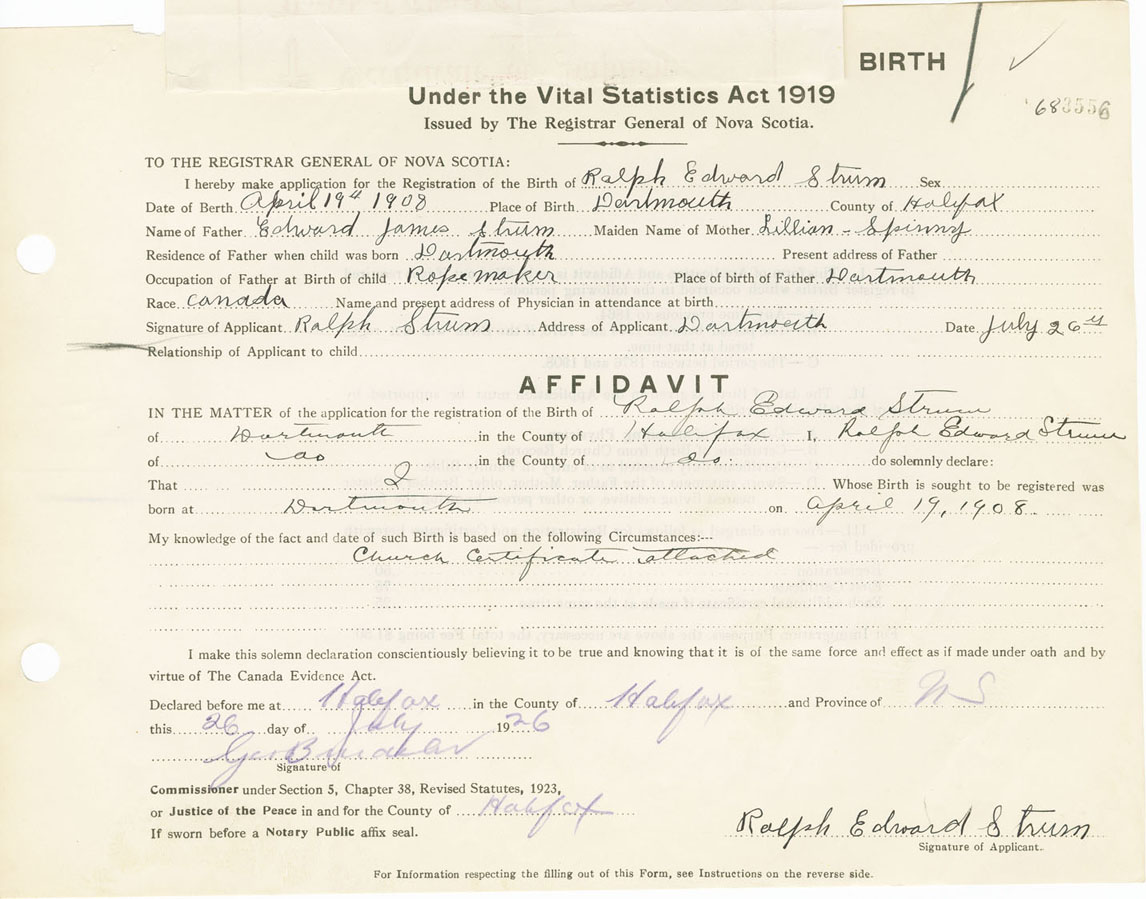 BIRTH
683556
Under the Vital Statistics Act 1919
Issued by The Registrar General of Nova Scotia.
TO THE REGISTRAR GENERAL OF NOVA SCOTIA:
I hereby make application for the Registration of the Birth of Ralph Edward Strum Sex
Date of Berth April 19th 1908 Place of Birth Dartmouth County of Halifax
Name of Father Edward James Strum Maiden Name of Mother Lillian - Spinny
Residence of Father when child was born Dartmouth Present address of Father
Occupation of Father at Birth of child Ropemaker Place of birth of Father Dartmouth
Race Canada Name and present address of Physician in attendance at birth
Signature of Applicant Ralph Strum Address of Applicant Dartmouth Date July 26
Relationship of Applicant to child
AFFIDAVIT
IN THE MATTER of the application for the registration of the Birth of Ralph Edward Strum
of Dartmouth in the County of Halifax I, Ralph Edward Strum
of do in the County of do. do solemnly declare:
That I Whose Birth is sought to be registered was
born at Dartmouth on April 19, 1908.
My knowledge of the fact and date of such Birth is based on the following Circumstances:---
Church Certificate attached
I make this solemn declaration conscientiously believing it to be true and knowing that it is of the same force and effect as if made under oath and by
virtue of The Canada Evidence Act.
Declared before me at Halifax in the County of Halifax and Province of N S
this 26 day of July 1926
Signature of
Commissioner under Section 5, Chapter 38, Revised Statutes, 1923,
or Justice of the Peace in and for the County of Halifax
If sworn before a Notary Public affix seal.
Ralph Edward Strum
Signature of Applicant.
For Information respecting the filling out of this Form, see Instructions on the reverse side.